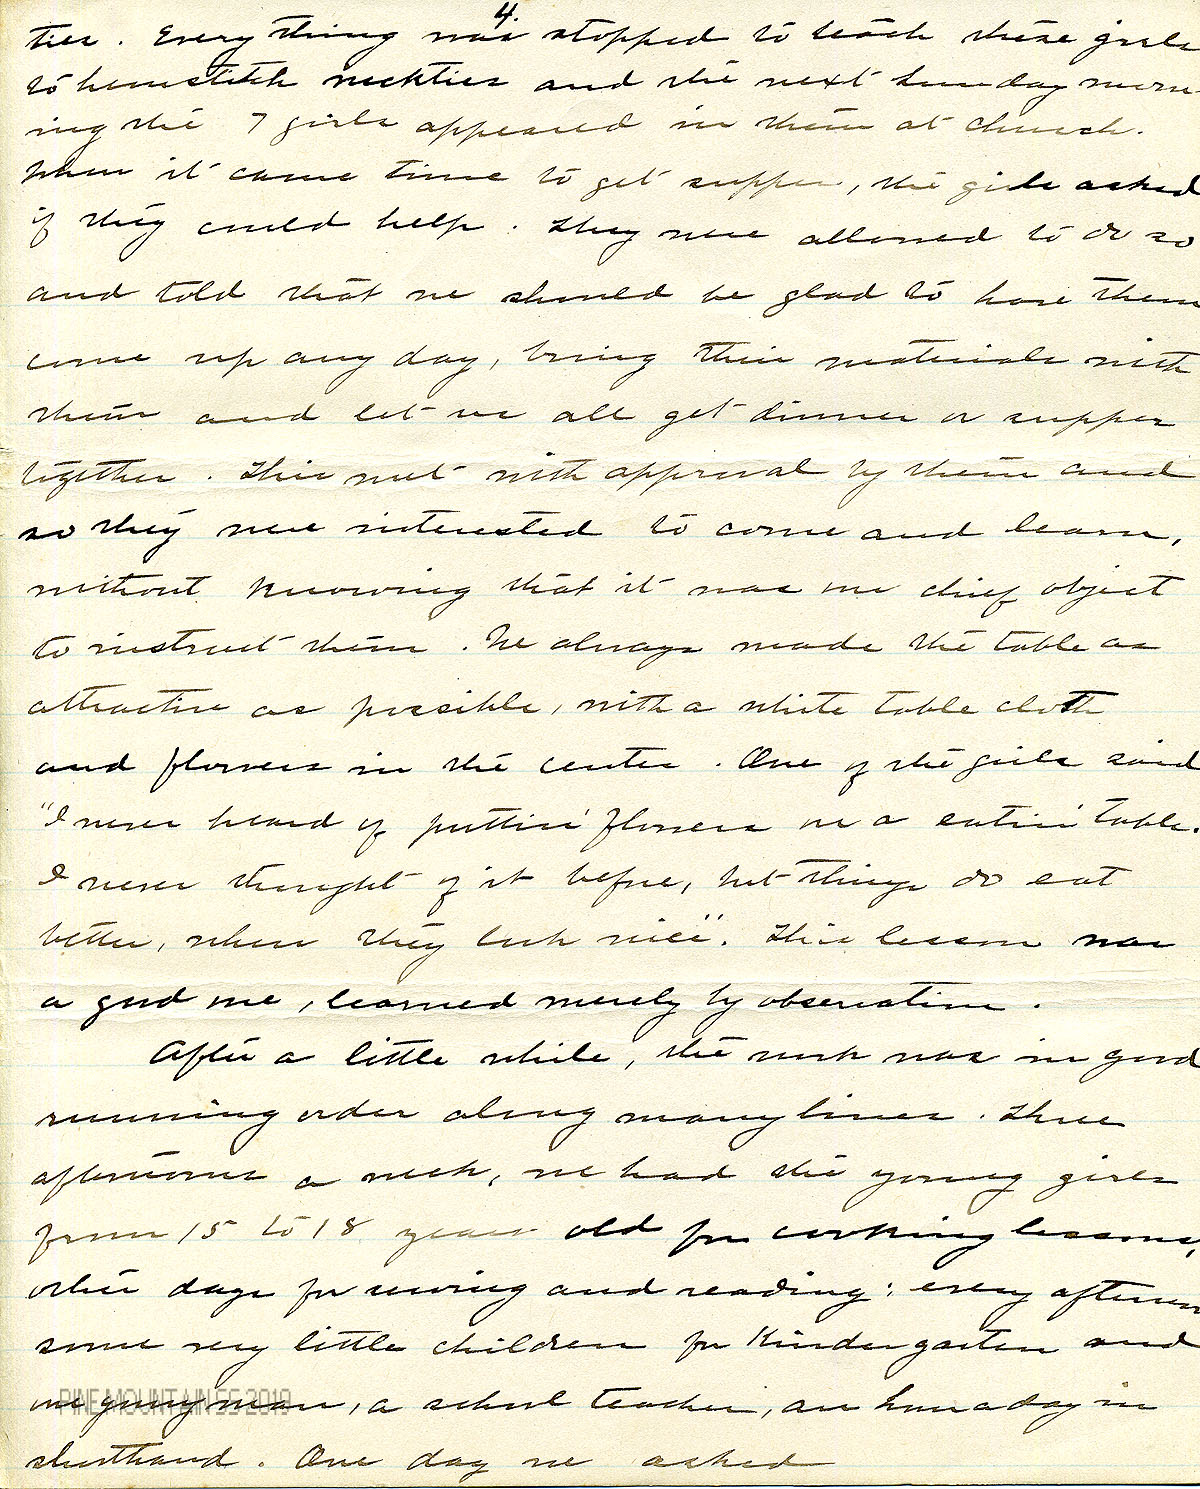 4.
ties. Everything was stopped to teach these girls
to hemstitch neckties and the next Sunday morn-
ing the 7 girls appeared in them at church.
When it came time to get supper, the girls asked
if they could help. They were allowed to do so
and told that we should be glad to have them
come up any day, bring their materials with
them and let us all get dinner or supper
together. This met with approval by them and
so they were interested to come and learn,
without knowing that it was our chief object
to instruct them. We always made the table as
attractive as possible, with a white table cloth
and flowers in the center. One of the girls said
"I never heard of puttin' flowers on a eatin' table.
I never thought of it before, but things do eat
better, when they look nice". This lesson was
a good one, learned merely by observation.
After a little while, the work was in good
running order along many lines. Three
afternoons a week, we had the young girls
from 15 to 18 years old for cooking lessons,
other days for sewing and reading; every afternoon
some very little children for Kindergarten and
one young man, a school teacher, an hour a day in
shorthand. One day we asked
PINE MOUNTAIN SS 2019